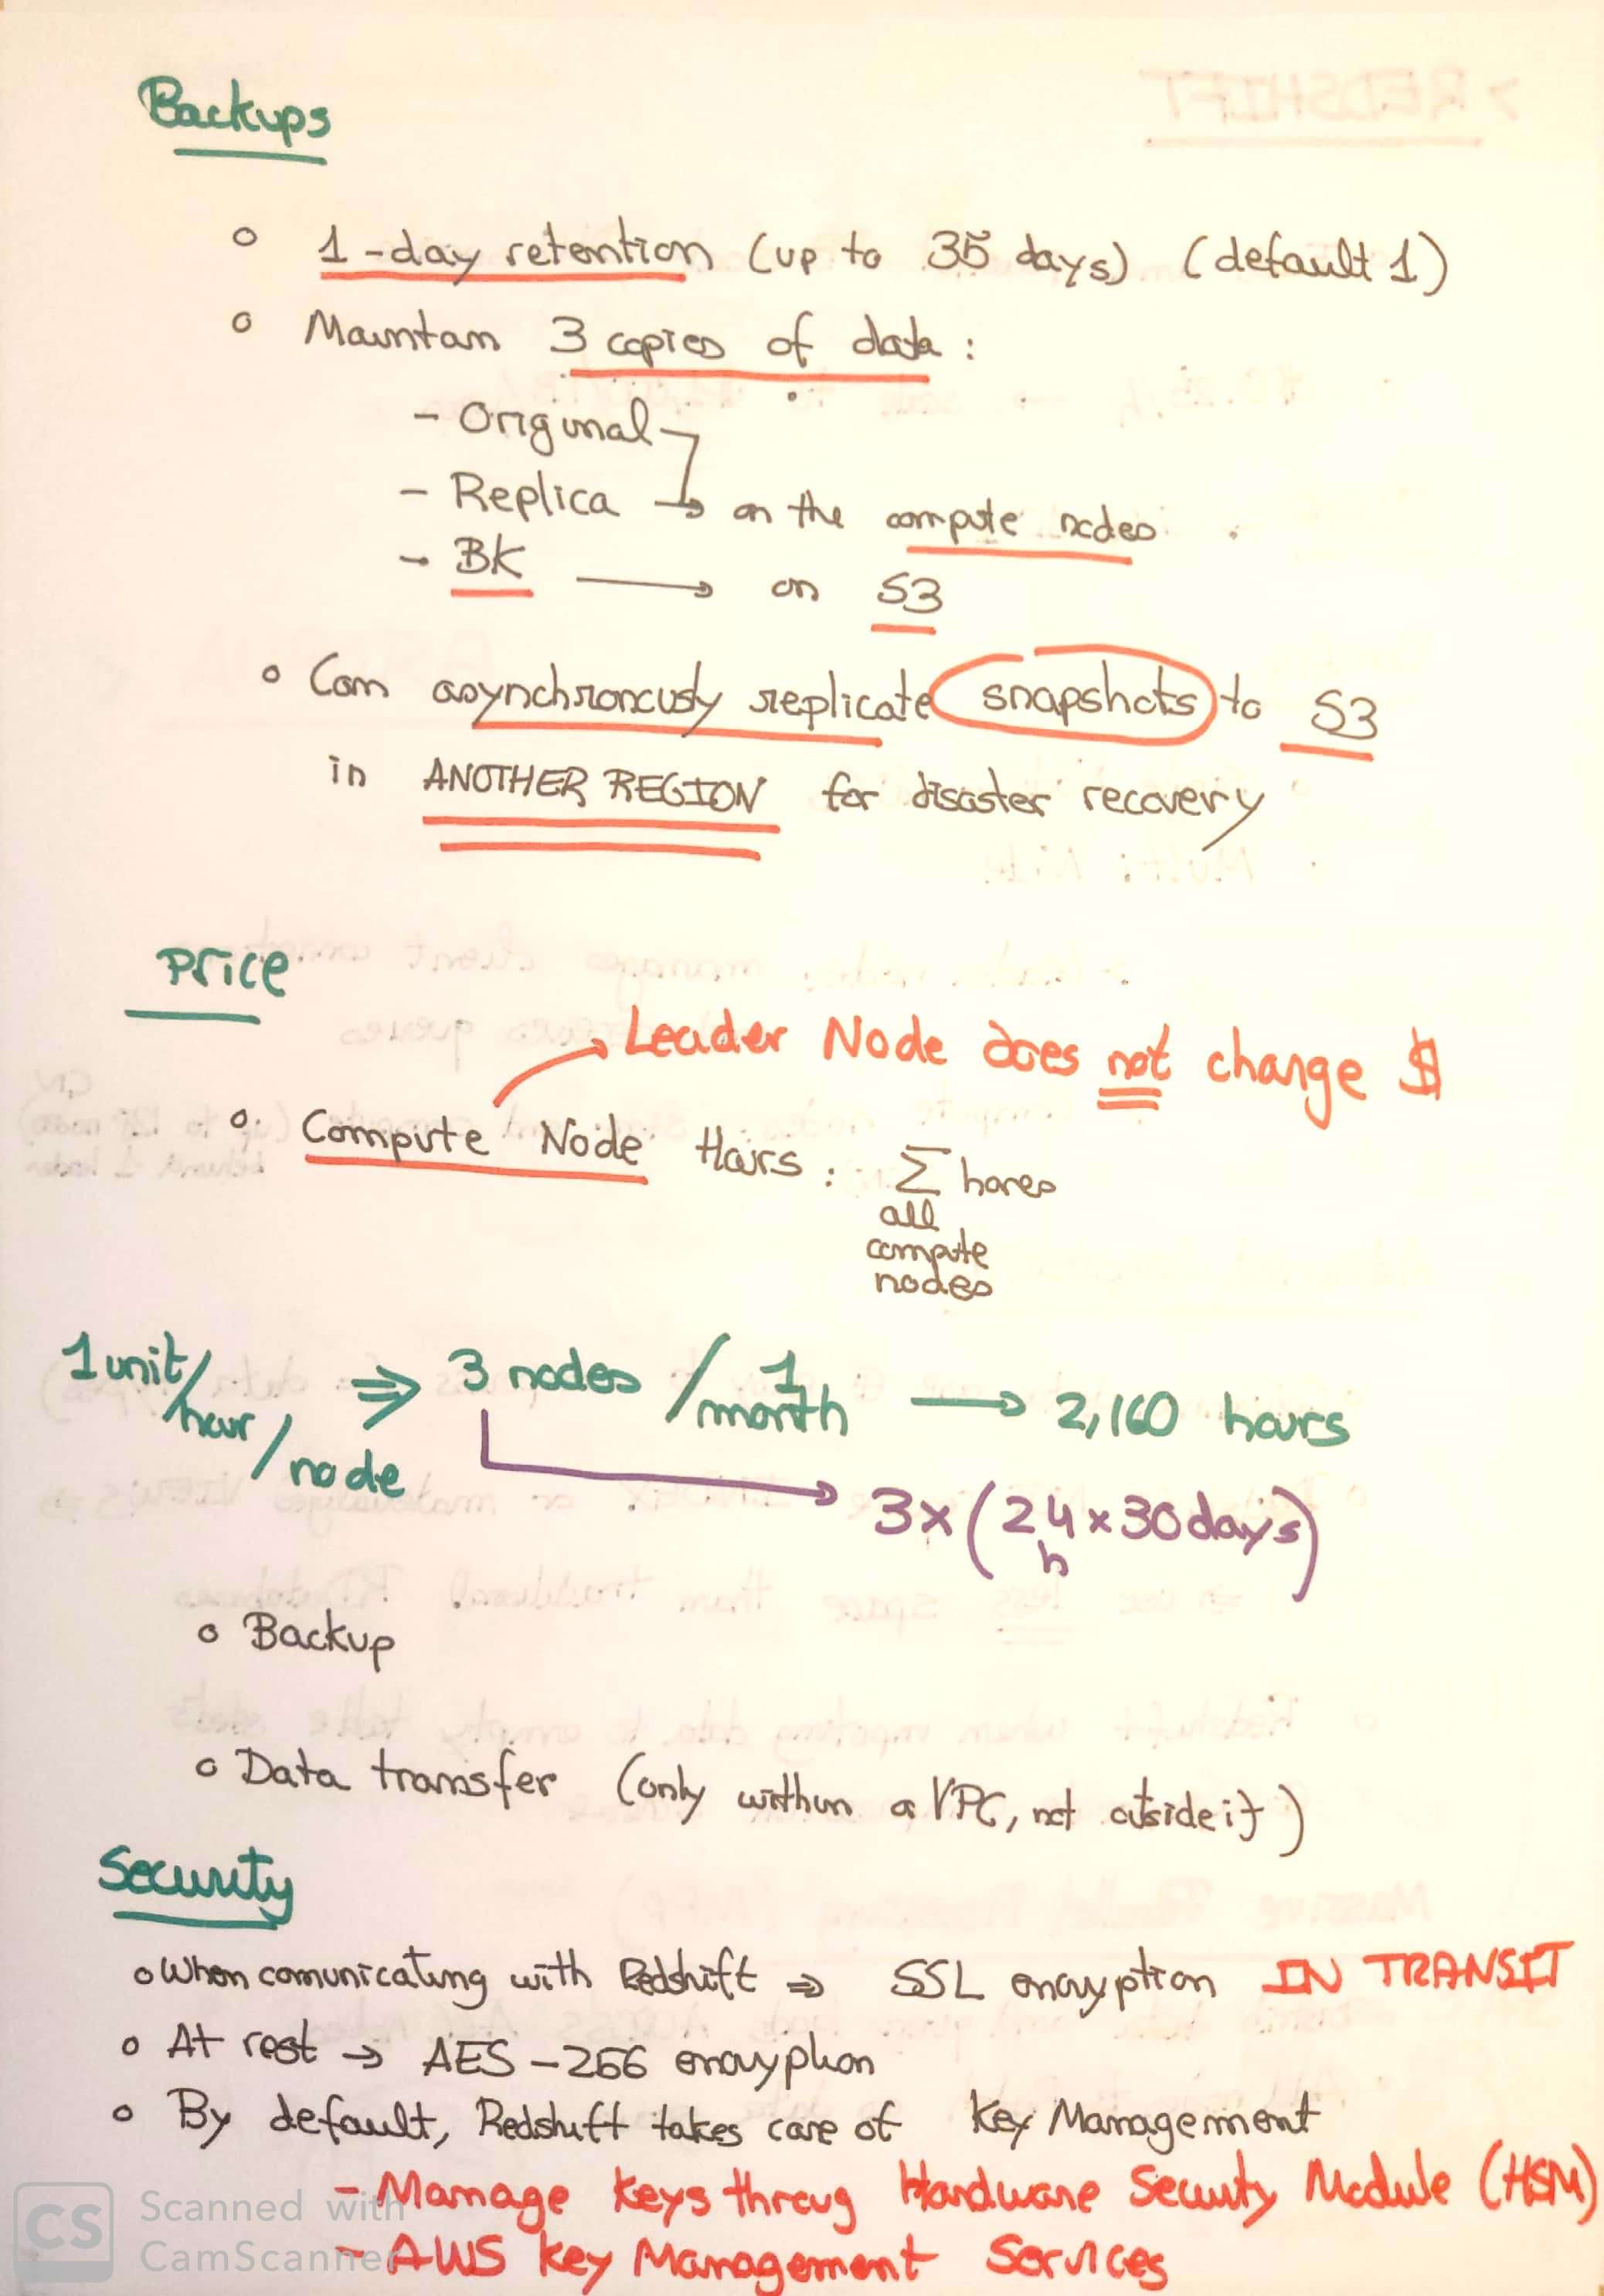 Backups
o 1-day retention (up to 35 days) (default 1)
o Maintan 3 copies of data :
- Original
- Replica → on the compute nodes
- BK → on S3
o Can asynchronously replicate snapshots to S3
in ANOTHER REGION for disaster recovery
Price
→ Leader Node does not change $
o Compute Node Hours : Σ hores
all
compute
nodes
1 unit/hour/node ⇒ 3 nodes / 1 month → 2,160 hours
→ 3x (24h x 30 days)
o Backup
o Data transfer (only within a VPC, not outside it)
Security
o When comunicating with Redshift ⇒ SSL encryption IN TRANSIT
o At rest → AES-256 encryption
o By default, Redshift takes care of Key Management
- Manage Keys throug Hardware Security Module (HSM)
- AWS Key Management Services
CS Scanned with
CamScanner